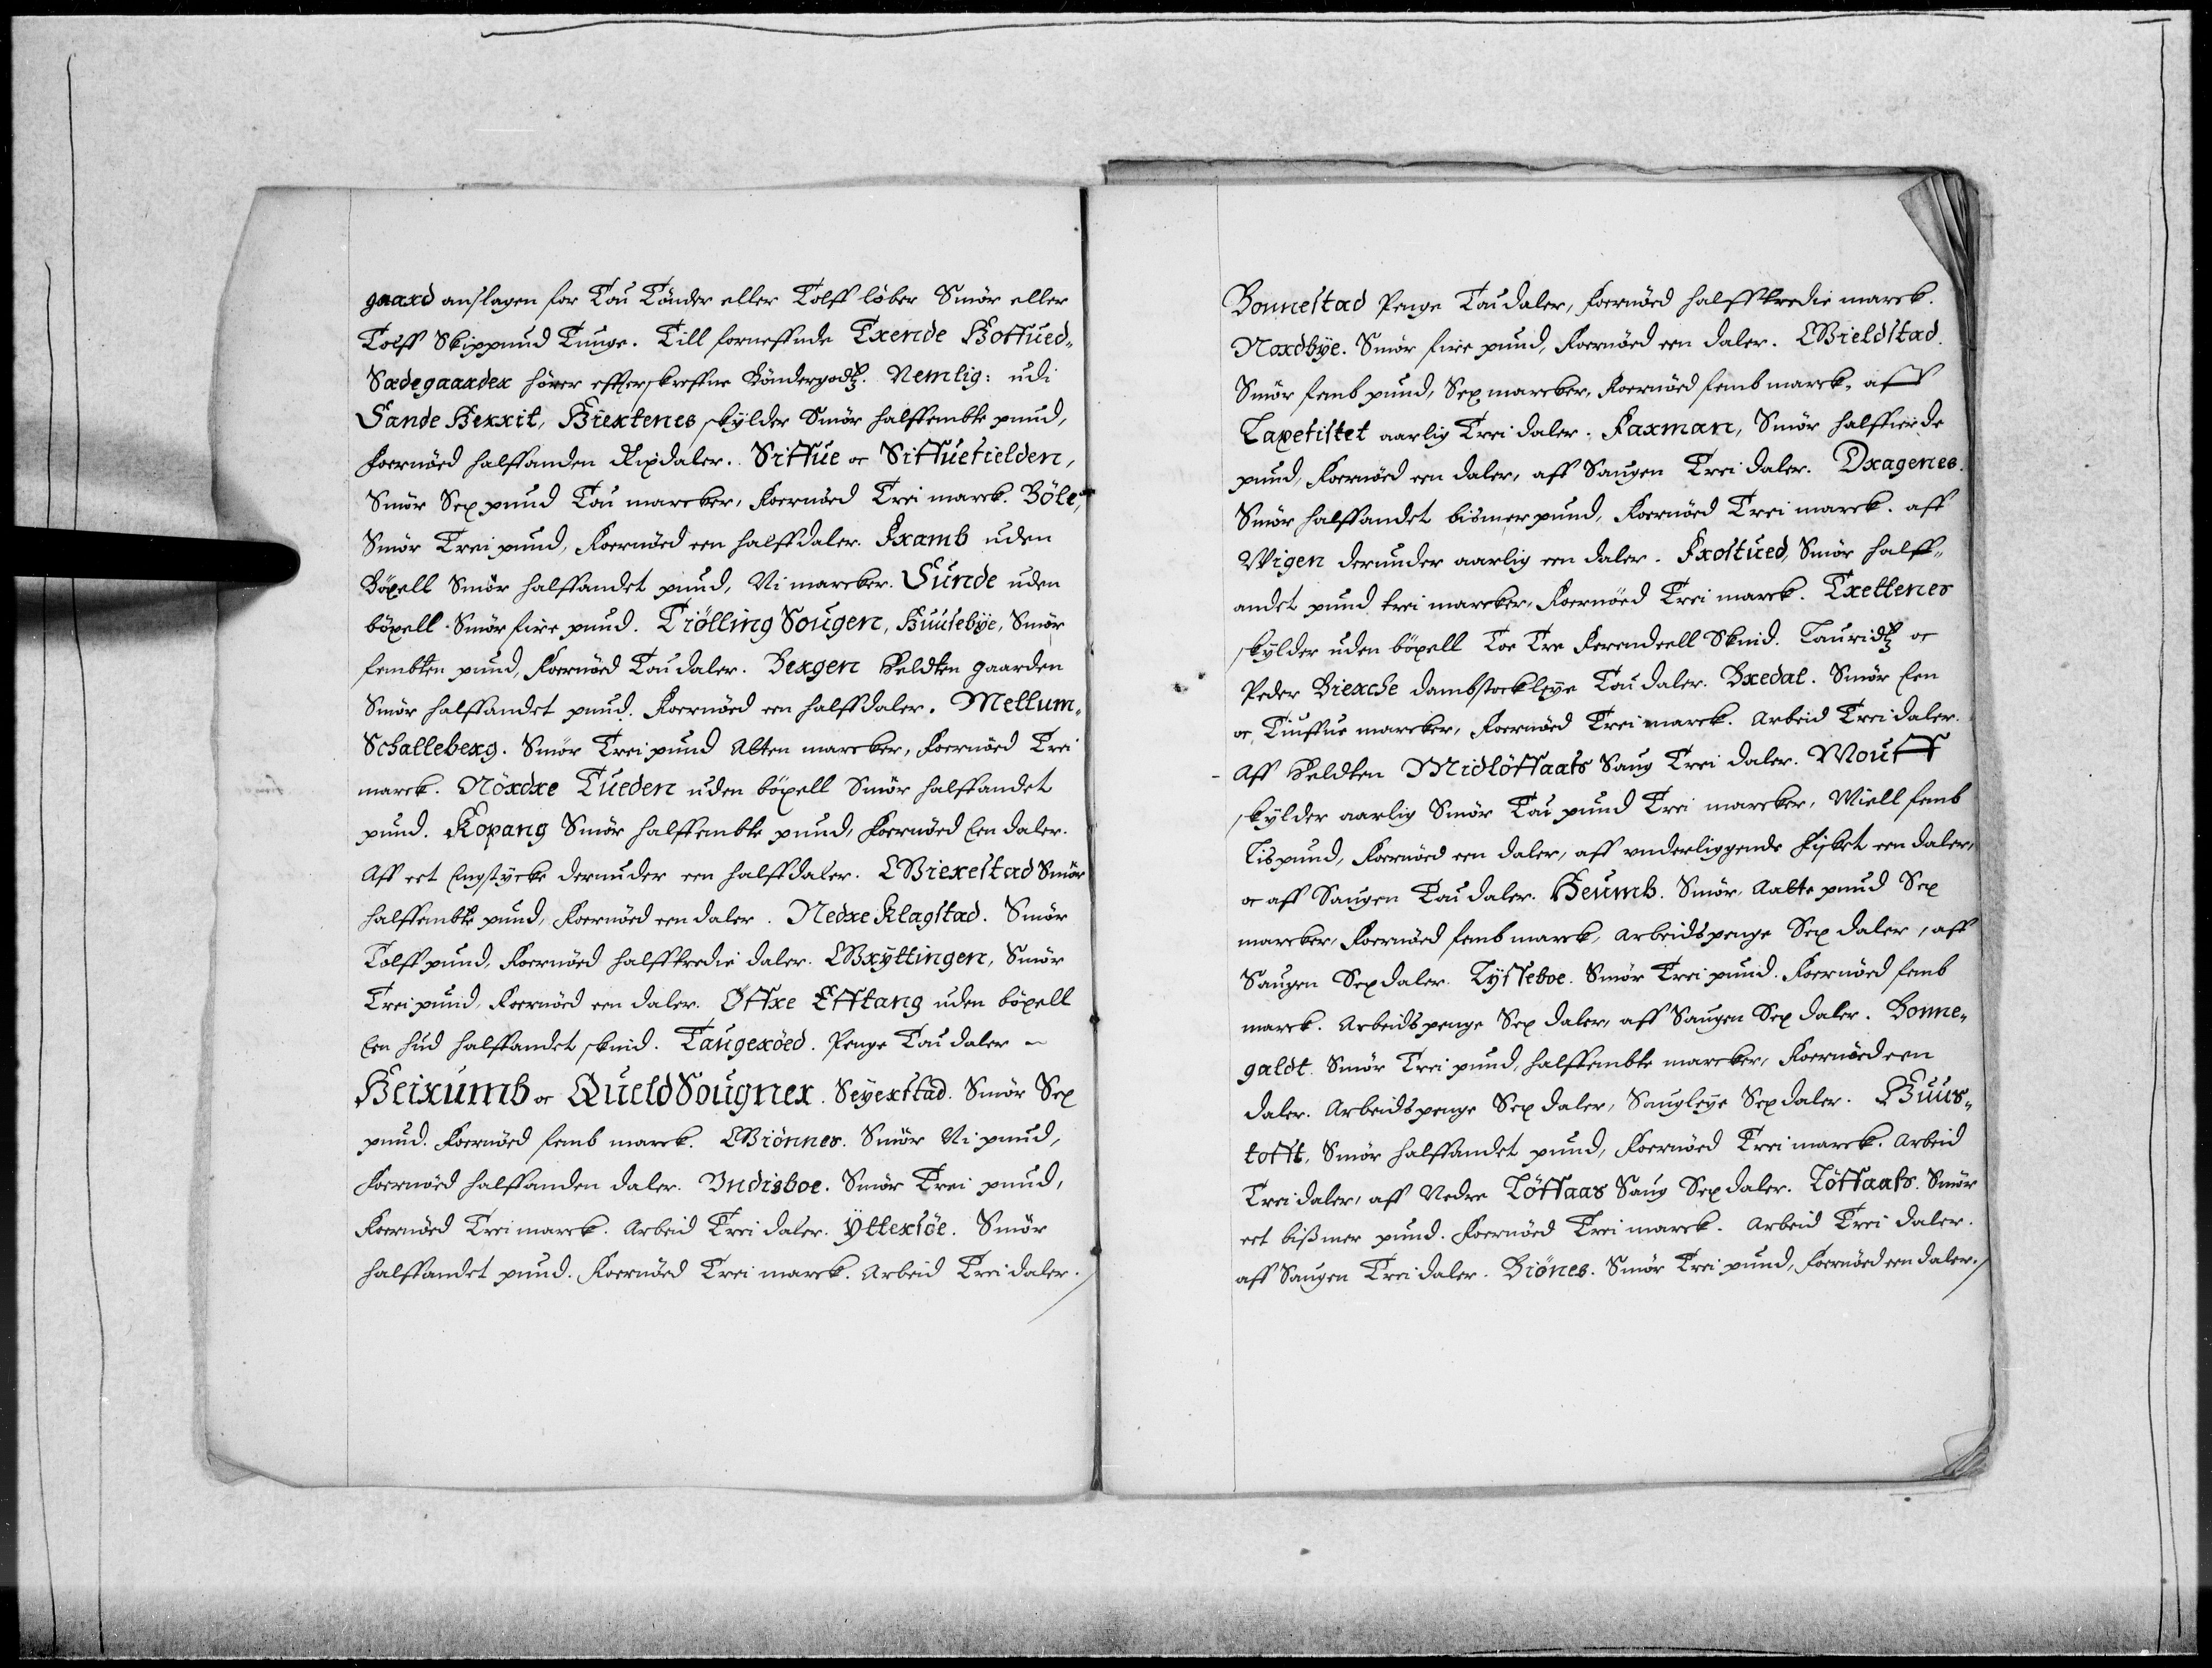 gaard anslagen for Tou Tønder eller Tolff løber Smør eller
Tolff Skippund Tunge. Till forneffnde Trende Hoffued-
Sædegaarder hører effterskreffne Bøndergodtz. Nemlig: udi
Sande Herrit, Biertenes skylder Smør halffembte pund,
foernød halffanden Rixdaler. Siffue oc Siffuefielden,
Smør Sex pund Tou marcker, foernød Trei marck. Böle,
Smør Trei pund, Foernød een halff daler. Framb uden
Böxell Smør halffandet pund, Ni marcker. Sunde uden
böxell Smør fiire pund. Tiölling Sougen, Huusebÿe, Smør
fembten pund, Foernød Tou daler. Bergen Heldten gaarden
Smør halffandet pund. Foernød een halff daler. Mellum-
Schalleberg. Smør Trei pund Atten marcker, foernød Trei
marck. Nördre Tueden uden böxell Smør halffandet
pund. Kopang Smør halffembte pund, foernød Een daler.
Aff eet Engstÿcke derunder een halff daler. Bierestad Smør
halffembte pund, foernød een daler. Nedre Klagstad. Smør
Tolff pund, foernød halfftredie daler. Brÿttingen, Smør
Trei pund, Foernød een daler. Öffre Efftang uden böxell
Een hud halffandet skind. Taugeröed. Penge Tou daler
Heirumb oc Queld Sougner. Seÿerstad. Smør Sex
pund. Foernød femb marck. Biönnes. Smør Ni pund,
foernød halffanden daler. Undisboe. Smør Trei pund,
Foernød Trei marck. Arbeid Trei daler. Ÿttersöe. Smør
halffandet pund. Foernød Trei marck. Arbeid Trei daler.
Bonnestad Penge Tou daler, foernød halfftredie marck.
Nordbÿe. Smør fiire pund, Foernød een daler. Bieldstad.
Smør femb pund, Sex marcker, Foernød femb marck, aff
Laxefisket aarlig Trei daler. Farman, Smør halffierde
pund, Foernød een daler, aff Saugen Trei daler. Dragenes.
Smør halffandet bismerpund, Foernød Trei marck. aff
Wigen derunder aarlig een daler. Frostued, Smør halff-
andet pund trei marcker, Foernød Trei marck. Trettenes
skÿlder uden böxell Toe Tre Ferendeell Skind. Lauridtz oc
Peder Bierche dambstockleÿe Tou daler. Bredal. Smør Een
oc Tiuffue marcker, Foernød Trei marck. Arbeid Trei daler.
Aff Heldten Midlöffaats Saug Trei daler. Mouff
skÿlder aarlig Smør Tou pund Trei marcker, Miell femb
Lispund, Foernød een daler, aff underliggende Fisket een daler,
oc aff Saugen Tou daler. Heumb. Smør, Aatte pund Sex
marcker, Foernød femb marck, Arbeidspenge Sex daler, aff
Saugen Sex daler. Lÿsseboe. Smør Trei pund. Foernød femb
marck. Arbeidspenge Sex daler, aff Saugen Sex daler. Bonne-
galdt. Smør Trei pund, halffembte marcker, Foernød een
daler. Arbeidspenge Sex daler, Saugleÿe Sex daler. Buus-
tofft, Smør halffandet pund, Foernød Trei marck. Arbeid
Trei daler, aff Nedre Löffaas Saug Sex daler. Löffaats. Smør
eet bißmer pund. Foernød Trei marck. Arbeid Trei daler.
aff Saugen Trei daler. Biönes. Smør Trei pund, Foernød een daler.